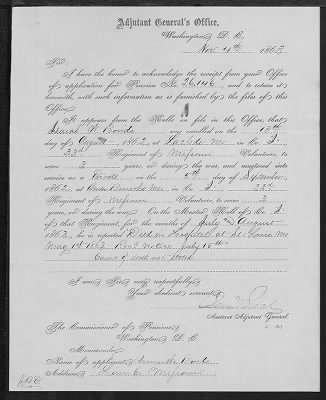 Adjutant General's Office,
Washington, D. C.,
Nov. 4th, 1863.
Sir:
I have the honor to acknowledge the receipt from your Office
of application for Pension No. 26,146, and to return it
herewith, with such information as is furnished by the files of this
Office.
It appears from the Rolls on file in this Office, that
was enrolled on the 13th
day of August, 1862, at Mo, in Co. F,
33d Regiment of Missouri Volunteers, to
serve 3 years, or during the war, and mustered into
service as a Private on the 5th day of September,
1862, at Benton Barracks Mo, in Co. F, 33d
Regiment of Missouri Volunteers, to serve 3
years, or during the war. On the Muster Roll of Co. F
of that Regiment, for the months of July & August,
1863, he is reported Died in Hospital at St. Louis Mo
May 1st 1863. Recd notice July 15th
Cause of death not stated
I am, Sir, very respectfully,
Your obedient servant,
Assistant Adjutant General.
The Commissioner of Pensions,
Washington, D. C.
Memoranda:
Name of applicant, Samantha
Address, Missouri